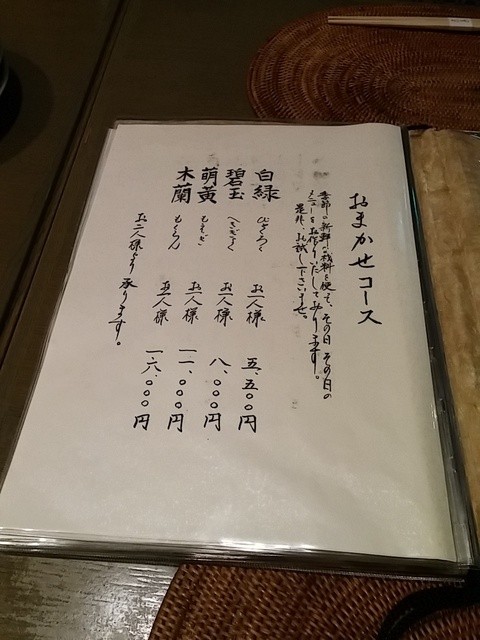 おまかせコース
季節の新鮮な材料を使って、その日その日の
メニューをお作りいたしております。
是非、お試し下さいませ。
白緑 びゃくろく お一人様 五、五〇〇円
碧玉 へきぎょく お一人様 八、〇〇〇円
萌黄 もえぎ お一人様 一一、〇〇〇円
木蘭 もくらん お一人様 一六、〇〇〇円
お二人様より承ります。